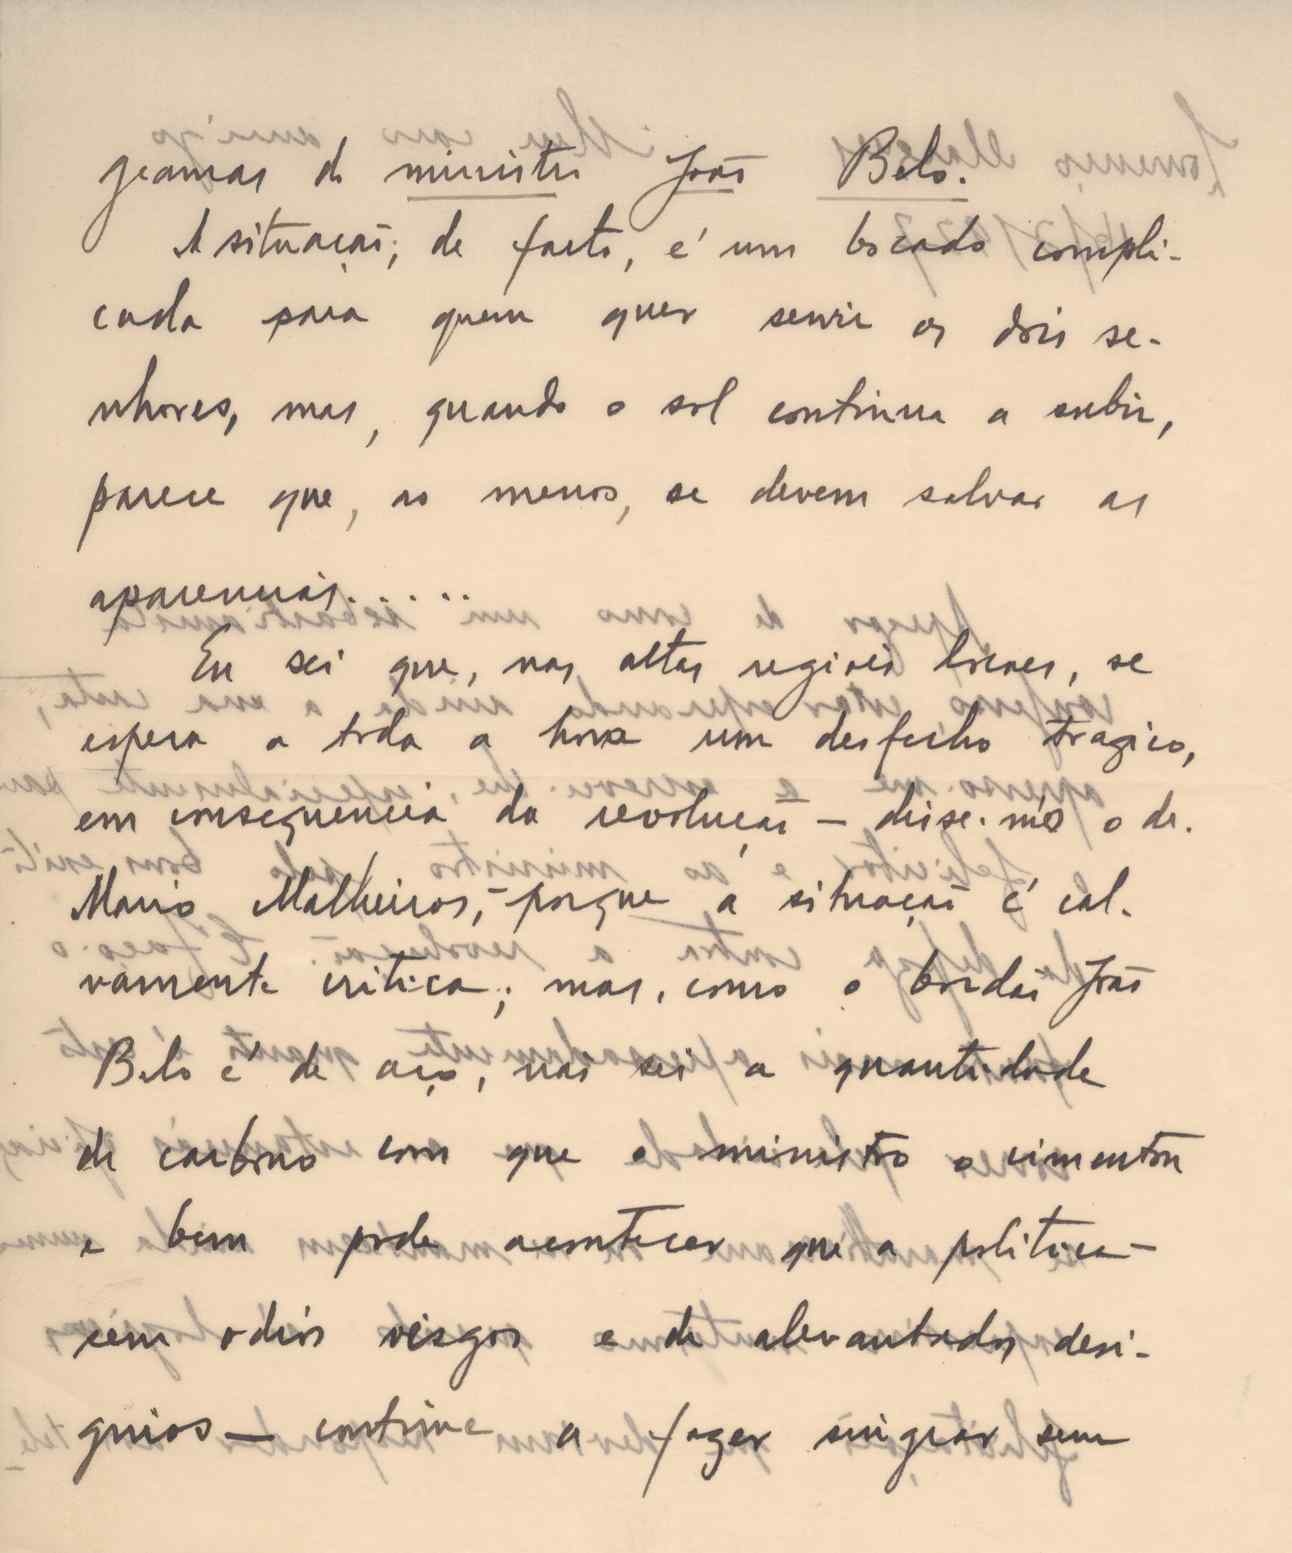 gramas do ministro João Belo.
A situação, de facto, é um bocado compli-
cada para quem quer servir os dois se-
nhores, mas, quando o sol continua a subir,
parece que, ao menos, se devem salvar as
aparencias.....
Eu sei que, nas altas regiões locaes, se
espera a toda a hora um desfecho tragico,
em consequencia da revolução — disse-m'o o dr.
Mario Malheiros, — porque a situação é
vamente critica; mas, como o bordão João
Belo é de aço, não sei a quantidade
de carbono com que o ministro o cimentou
e bem pode acontecer que a politica —
sem odios vesgos e de alevantados desi-
gnios — continue a fazer singrar sem